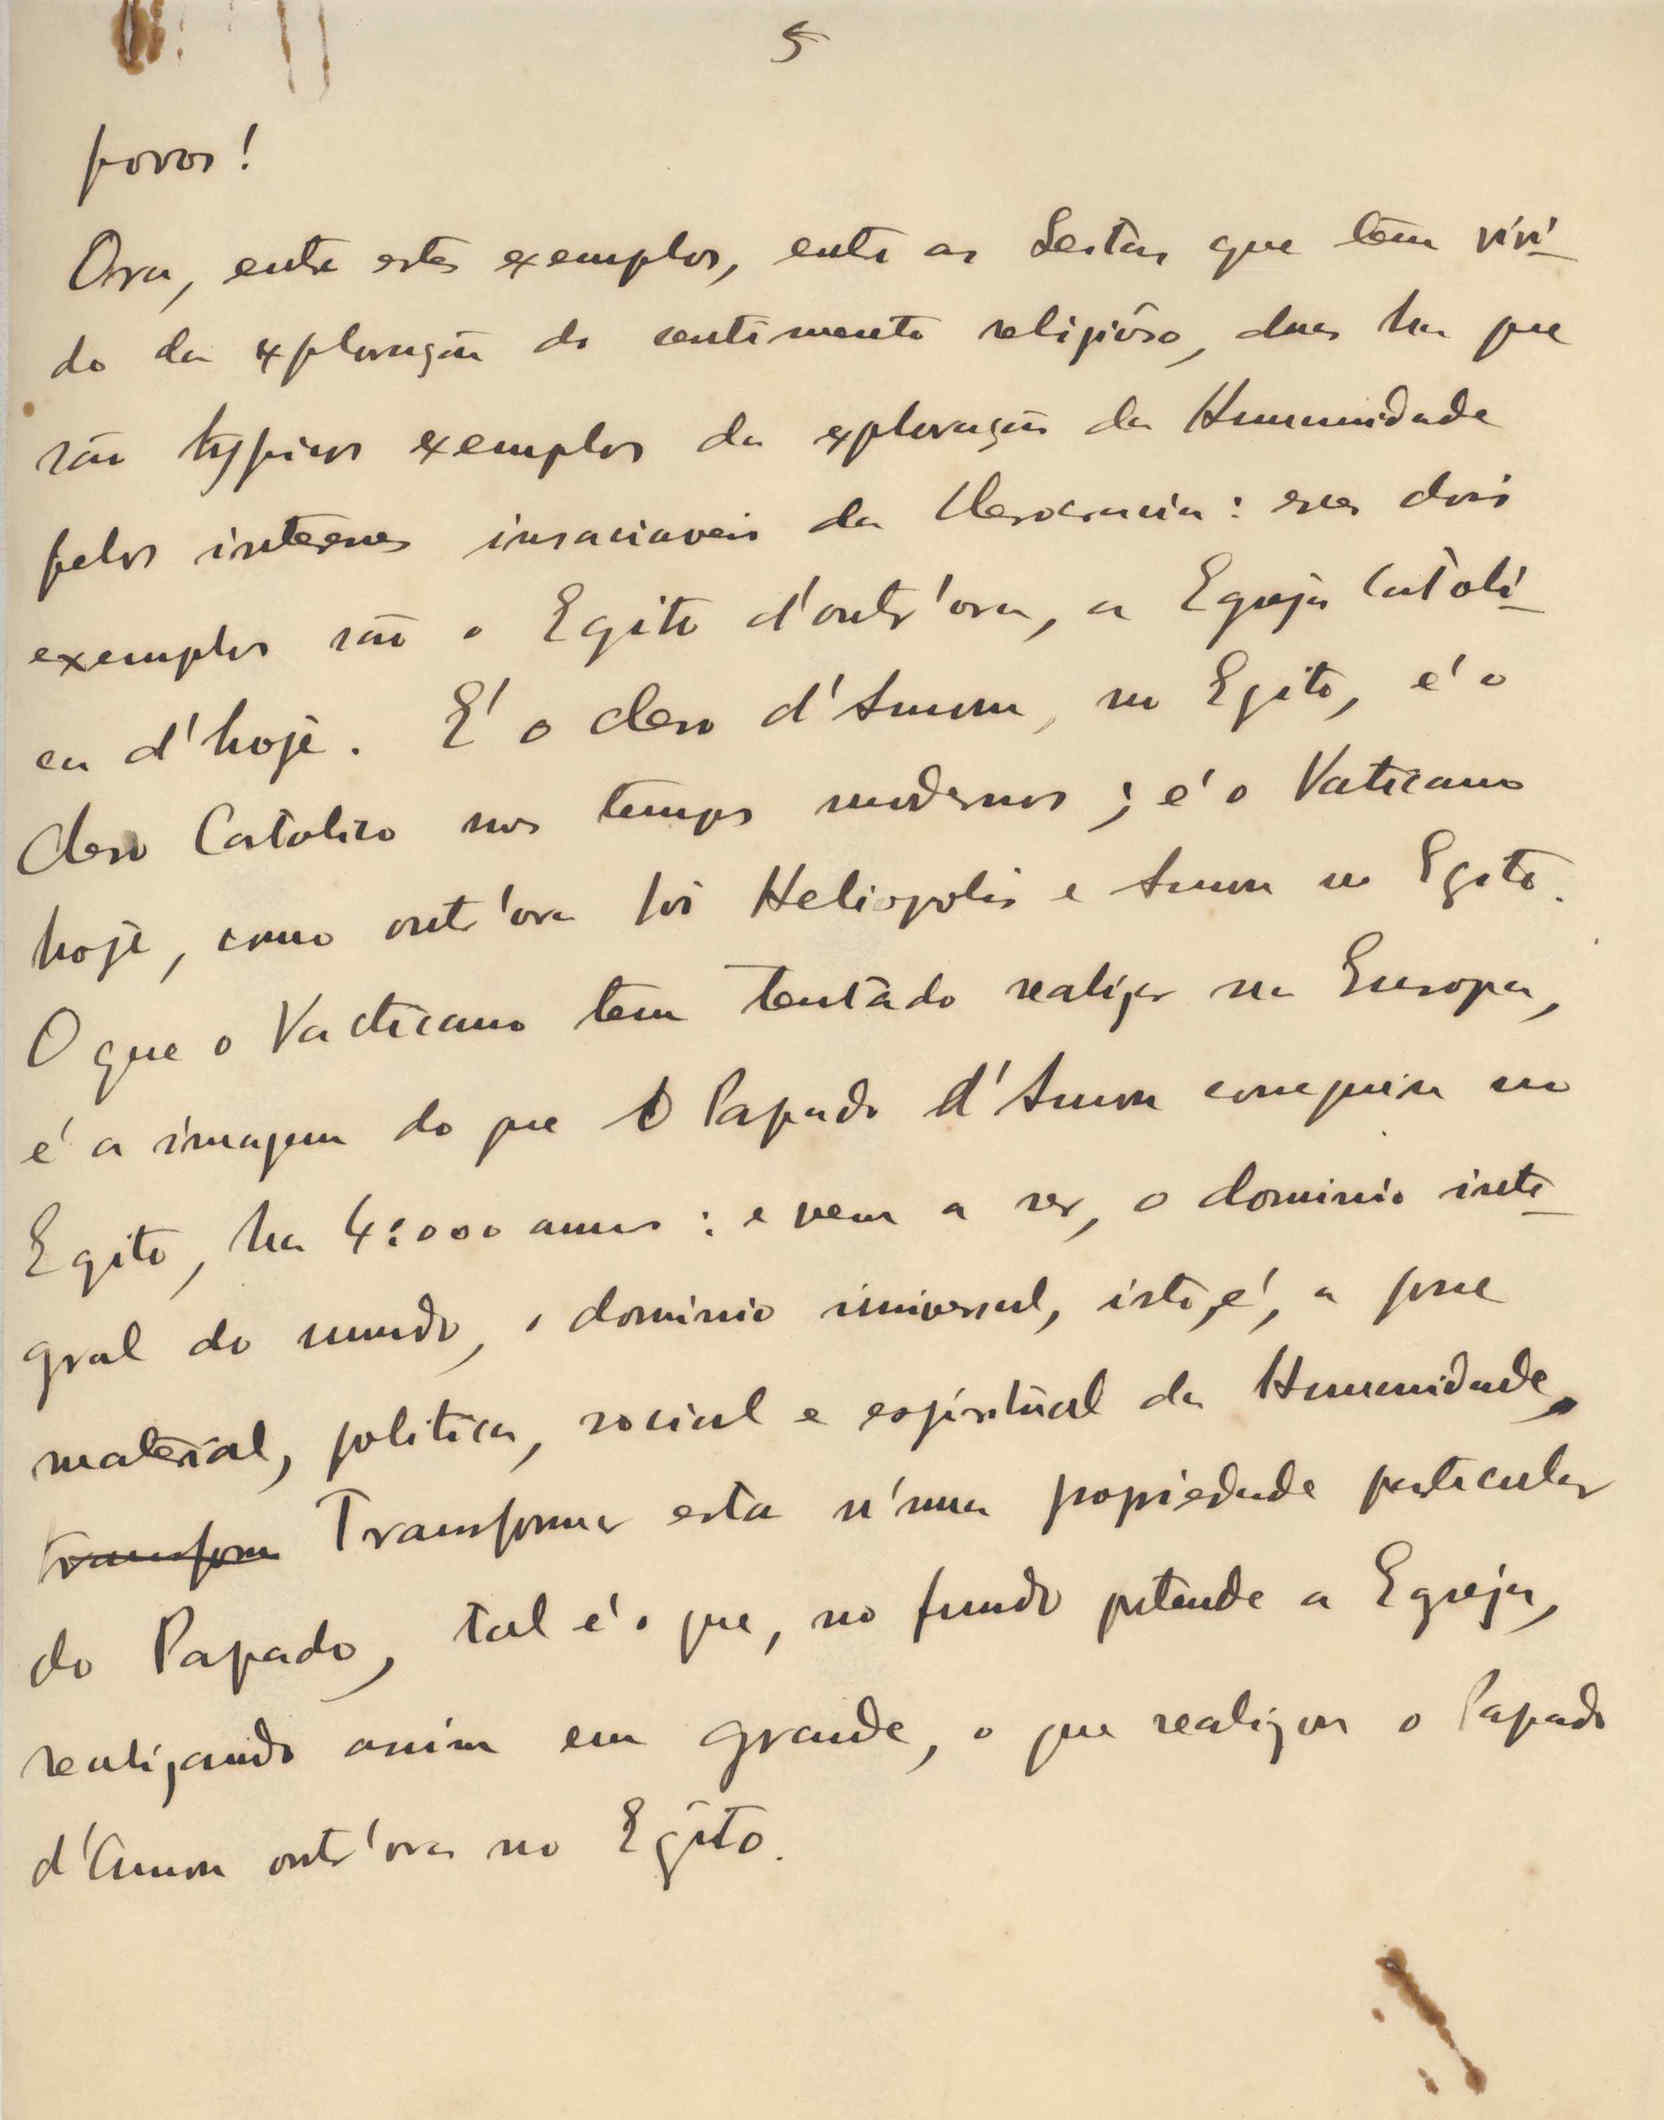 5
povos!
Ora, entre estes exemplos, entre as Seitas que têm vivi-
do da exploração do sentimento religiôso, duas ha que
são typicos exemplos da exploração da Humanidade
pelos interesses insaciaveis da Clerocracia: esses dois
exemplos são o Egito d'outr'ora, a Egreja Catoli-
ca d'hoje. E' o clero d'Amon, no Egito, é o
Clero Catolico nos tempos modernos; é o Vaticano
hoje, como outr'ora foi Heliopolis e Amon no Egito.
O que o Vacticano tem tentado realizar na Europa,
é a imagem do que O Papado d'Amon conseguiu no
Egito, ha 4:000 annos: e vem a ser, o dominio inte-
gral do mundo, o dominio universal, isto, é, a posse
material, politica, social e espiritual da Humanidade,
transform Transformar esta n'uma propriedade particular
do Papado, tal é o que, no fundo pretende a Egreja,
realizando assim em grande, o que realizou o Papado
d'Amon outr'ora no Egito.